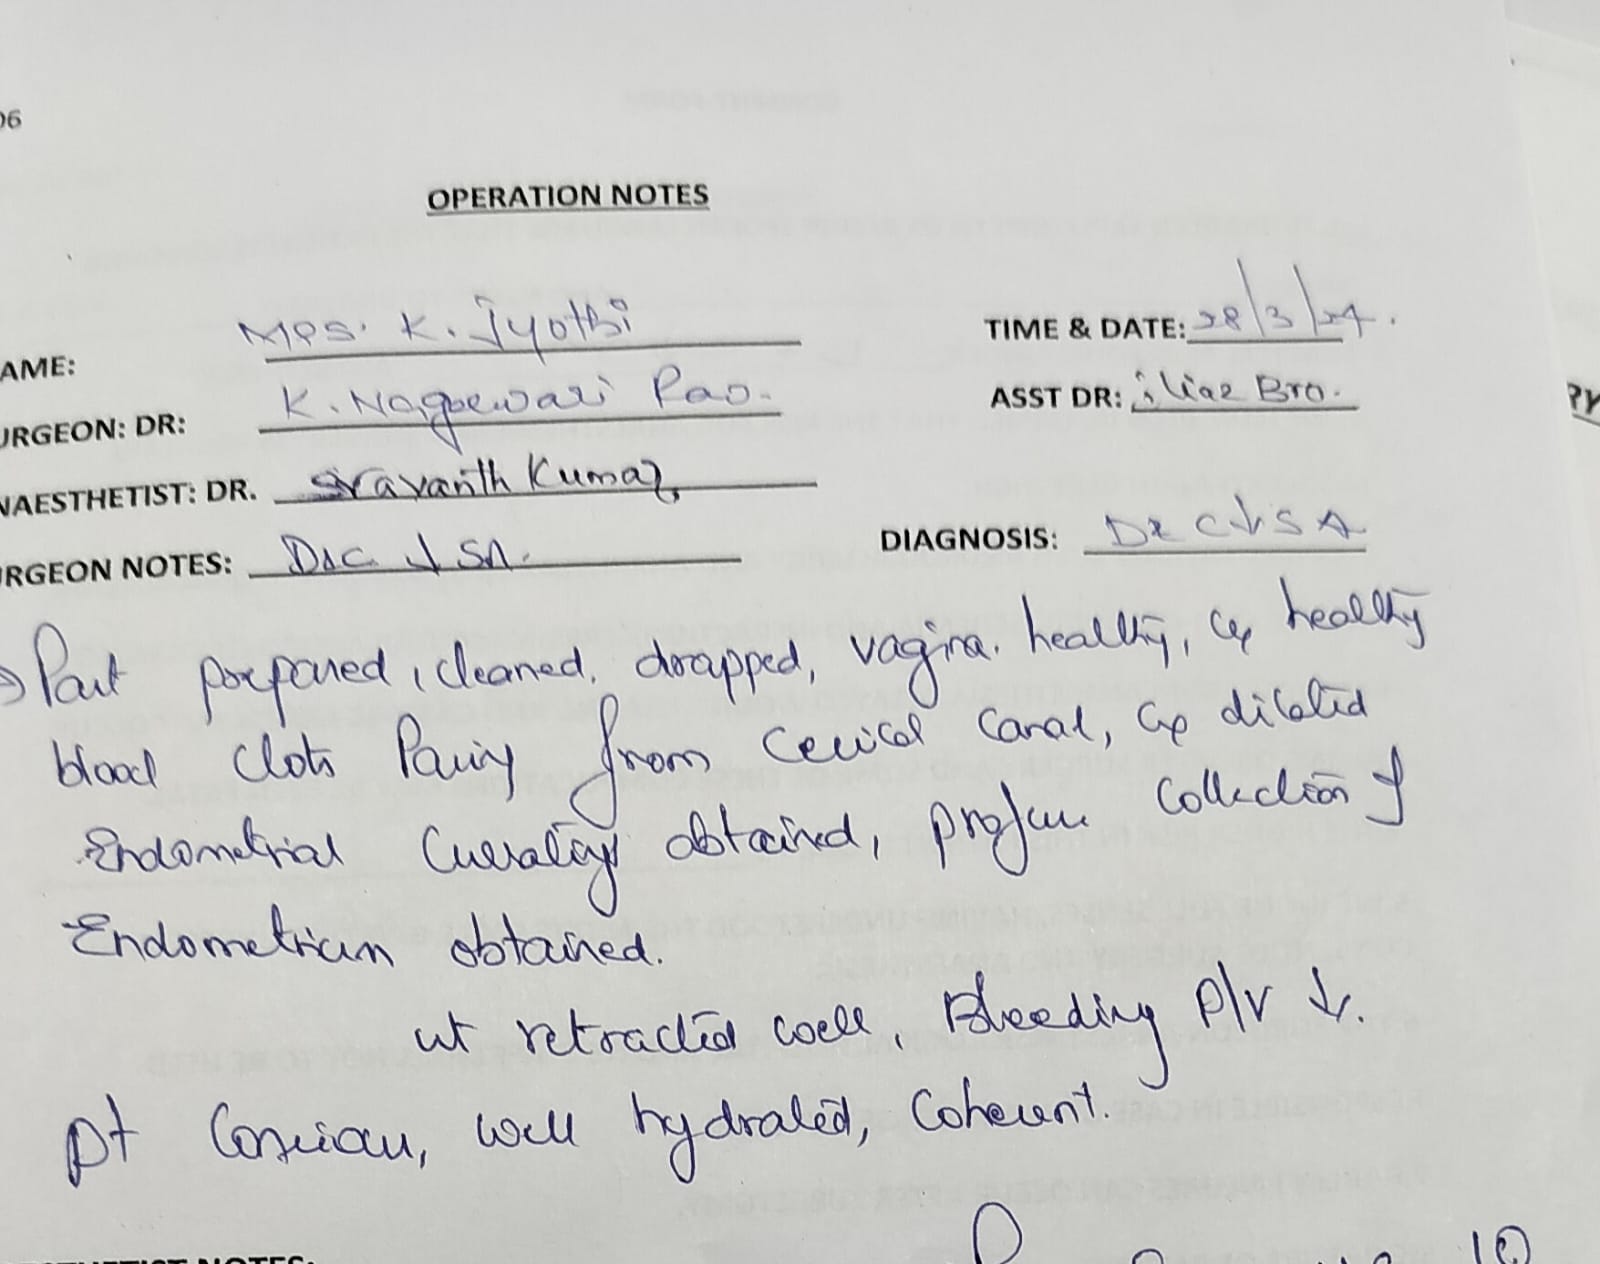 06
OPERATION NOTES
AME: Mrs. K. Jyothi
TIME & DATE: 28/3/24.
URGEON: DR: K. Nageswari Rao.
ASST DR: iliaz Bro.
NAESTHETIST: DR. Sravanth Kumar
RGEON NOTES: D&C ↓ SA.
DIAGNOSIS: D& C ↓ S A
→ Part prepared, cleaned, drapped, vagina. healthy, Cx healthy
blood clots from cervical canal, Cx dilated
Endometrial obtained, profuse collection of
Endometrium obtained.
ut retracted well, Bleeding P/V ↓.
pt Conscious, well hydrated, Coherent.
10